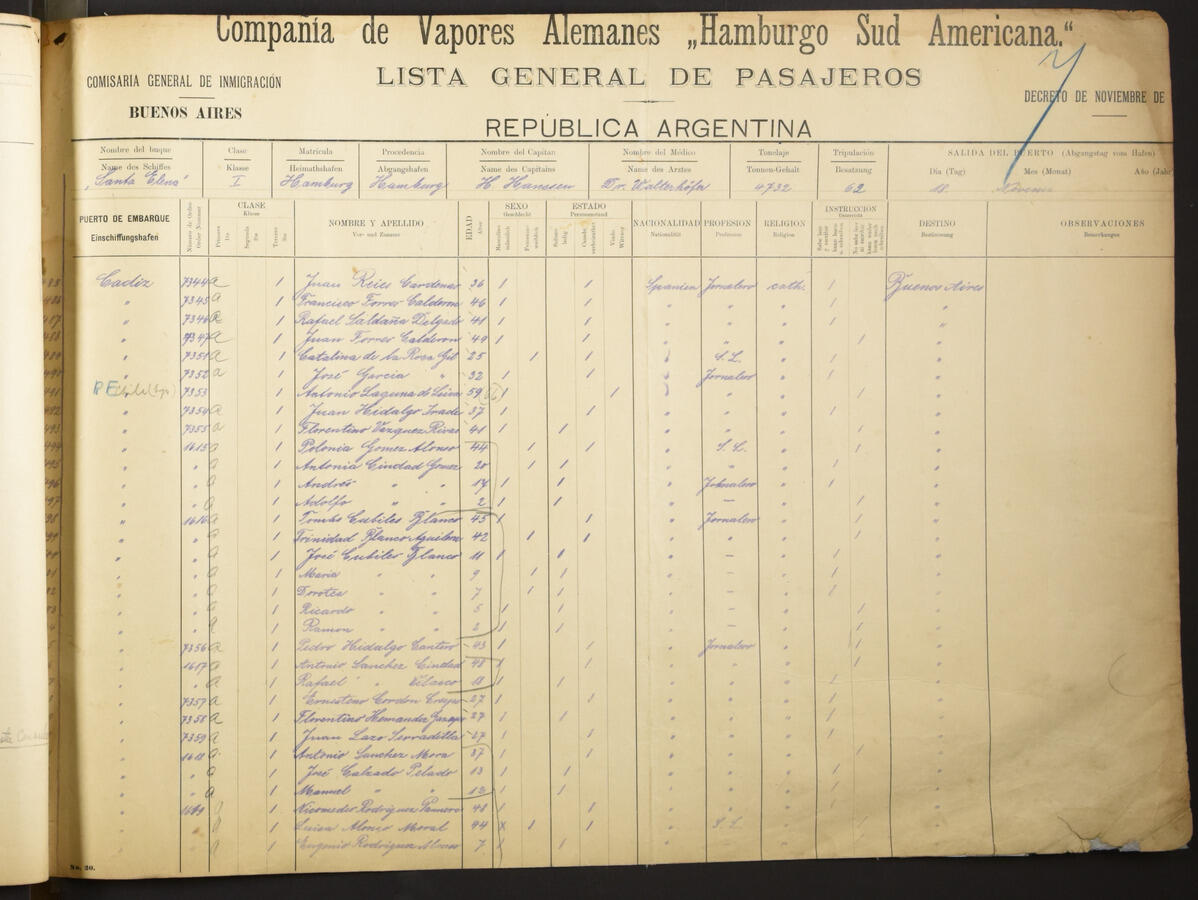 Compañia de Vapores Alemanes „Hamburgo Sud Americana."
COMISARIA GENERAL DE INMIGRACIÓN
BUENOS AIRES
LISTA GENERAL DE PASAJEROS
REPÚBLICA ARGENTINA
DECRETO DE NOVIEMBRE DE
Nombre del buque Clase Matrícula Procedencia Nombre del Capitan Nombre del Médico Tonelaje Tripulación SALIDA DEL PUERTO (Abgangstag vom Hafen)
Name des Schiffes Klasse Heimathshafen Abgangshafen Name des Capitains Name des Arztes Tonnen-Gehalt Besatzung Dia (Tag) Mes (Monat) Año (Jahr
„Santa Elena" I Hamburg Hamburg H. Hansen Dr. Walterhöfer 4732 62 18
PUERTO DE EMBARQUE Número de Orden CLASE NOMBRE Y APELLIDO EDAD SEXO ESTADO NACIONALIDAD PROFESION RELIGION INSTRUCCIÓN DESTINO OBSERVACIONES
Einschiffungshafen Klasse Vor- und Zuname Alter Geschlecht Personenstand Nationalität Profession Religion Unterricht Bestimmung Bemerkungen
Cadiz 7344 a 1 Juan Reies Cardenas 36 1 1 Spanien Jornalero cath. 1 Buenos Aires
" 7345 a 1 Francisco Torres Calderon 46 1 1 " " " 1 "
" 7346 a 1 Rafael Saldaña Delgado 41 1 1 " " " 1 "
" 7347 a 1 Juan Torres Calderon 49 1 1 " " " 1 "
" 7351 a 1 Catalina de la Rosa Gil 25 1 1 " S.L. " 1 "
" 7352 a 1 José Garcia " 32 1 1 " Jornalero " 1 "
7353 1 Antonio Laguna de 59 1 1 " " " 1 "
" 7354 a 1 Juan Hidalgo 37 1 1 " " " 1 "
" 7355 a 1 Florentino Vazquez Rivas 41 1 1 " " " 1 "
" 1615 a 1 Polonia Gomez Alonso 44 1 1 " S.L. " 1 "
" " a 1 Antonia Ciudad Gomez 20 1 1 " " " 1 "
" " a 1 Andrés " " 17 1 1 " Jornalero " 1 "
" " a 1 Adolfo " " 2 1 1 " — " 1 "
" 1616 a 1 Tomás Cubiles Blanco 45 1 1 " Jornalero " 1 "
" " a 1 Trinidad Blanco Aguilera 42 1 1 " " " 1 "
" " a 1 José Cubiles Blanco 11 1 1 " — " 1 "
" " a 1 Maria " " 9 1 1 " — " 1 "
" " a 1 Dorotea " " 7 1 1 " — " 1 "
" " a 1 Ricardo " " 5 1 1 " — " 1 "
" " a 1 Ramon " " 2 1 1 " — " 1 "
" 7356 a 1 Pedro Hidalgo Cantero 43 1 1 " Jornalero " 1 "
" 1617 a 1 Antonio Sanchez Ciudad 48 1 1 " " " 1 "
" " a 1 Rafael " Velasco 18 1 1 " " " 1 "
" 7357 a 1 Ernesteno Cordon Crespo 27 1 1 " " " 1 "
" 7358 a 1 Florentino Hernandez 27 1 1 " " " 1 "
" 7359 a 1 Juan Lazo Serradilla 27 1 1 " " " 1 "
" 1618 a 1 Antonio Sanchez Mora 37 1 1 " " " 1 "
" " a 1 José Calzado Pelado 13 1 1 " " " 1 "
" " a 1 Manuel " " 12 1 1 " " " 1 "
" 1619 a 1 Nicomedes Rodriguez 48 1 1 " " " 1 "
" " a 1 Luisa Alonso Moral 44 x 1 1 " S.L. " 1 "
" " a 1 Eugenio Rodriguez Alonso 7 1 1 " " " 1 "
No. 20.